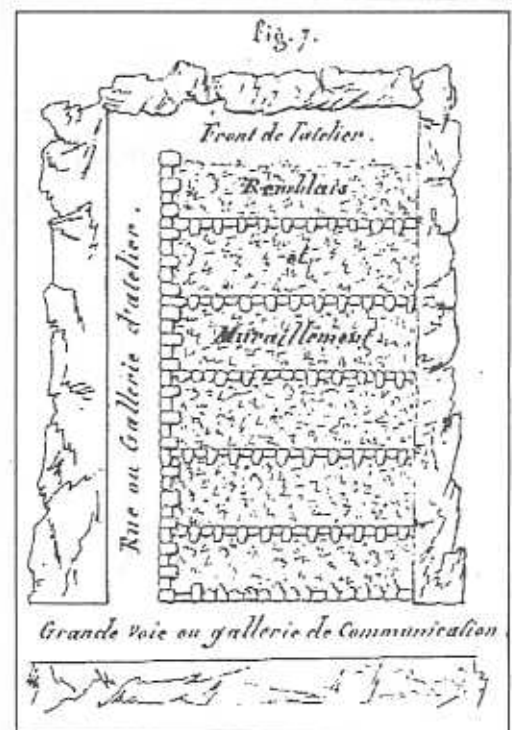 fig. 7.
Front de l'atelier.
Remblais
et
Muraillement
Rue ou Gallerie d'atelier.
Grande Voie ou gallerie de Communication.